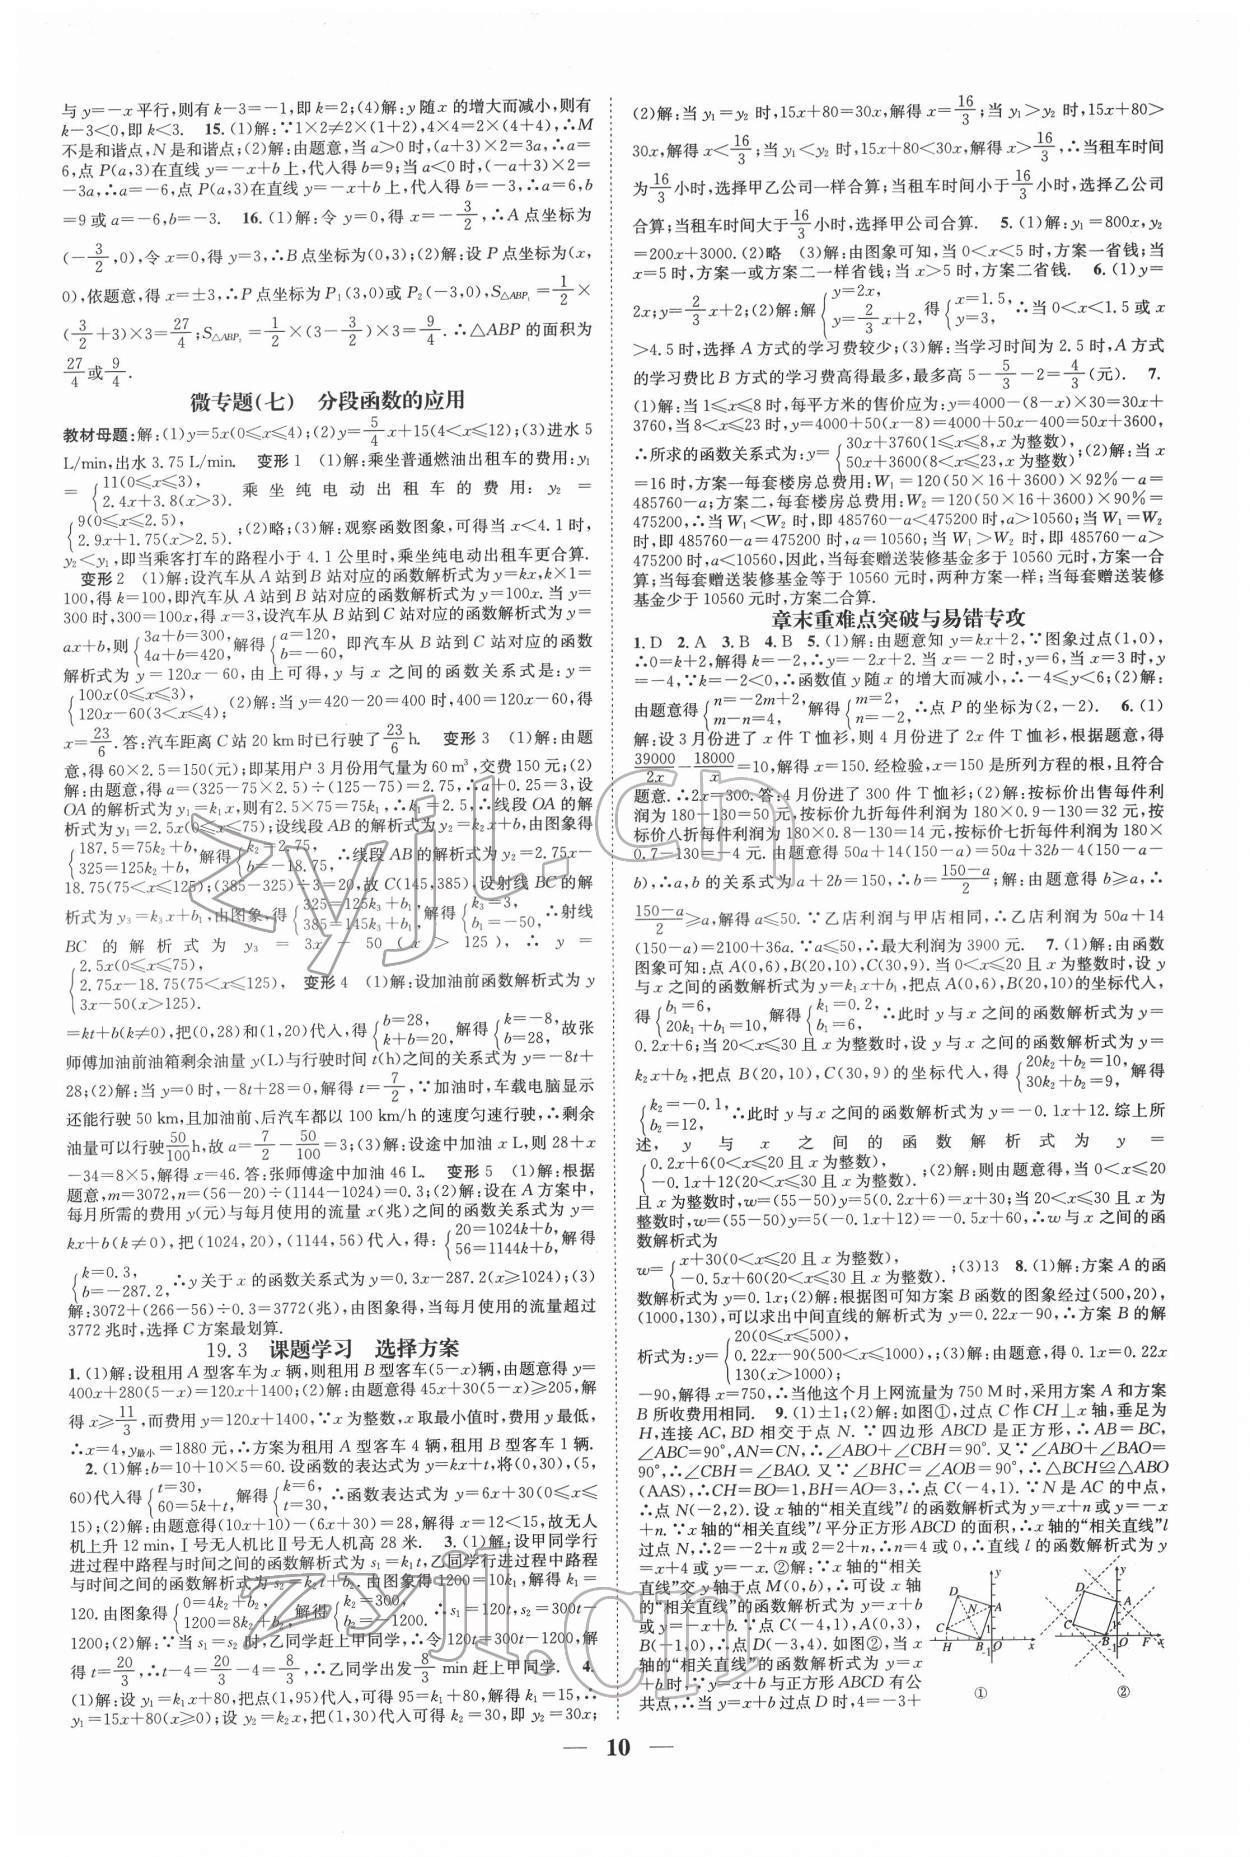 与y=-x平行,则有k-3=-1,即k=2;(4)解:y随x的增大而减小,则有
k-3<0,即k<3. 15.(1)解:∵1×2≠2×(1+2),4×4=2×(4+4),∴M
不是和谐点,N是和谐点;(2)解:由题意,当a>0时,(a+3)×2=3a,∴a=
6,点P(a,3)在直线y=-x+b上,代入得b=9;当a<0时,(-a+3)×2=
-3a,∴a=-6,点P(a,3)在直线y=-x+b上,代入得b=-3,∴a=6,b
=9或a=-6,b=-3. 16.(1)解:令y=0,得x=-3/2,∴A点坐标为
(-3/2,0),令x=0,得y=3,∴B点坐标为(0,3);(2)解:设P点坐标为(x,
0),依题意,得x=±3,∴P点坐标为P₁(3,0)或P₂(-3,0),S△ABP₁=1/2×
(3/2+3)×3=27/4;S△ABP₂=1/2×(3-3/2)×3=9/4.∴△ABP的面积为
27/4或9/4.
微专题(七) 分段函数的应用
教材母题:解:(1)y=5x(0≤x≤4);(2)y=5/4x+15(4<x≤12);(3)进水5
L/min,出水3.75 L/min. 变形1 (1)解:乘坐普通燃油出租车的费用:y₁
={11(0≤x≤3), 2.4x+3.8(x>3). 乘坐纯电动出租车的费用:y₂=
{9(0≤x≤2.5), 2.9x+1.75(x>2.5).;(2)略;(3)解:观察函数图象,可得当x<4.1时,
y₂<y₁,即当乘客打车的路程小于4.1公里时,乘坐纯电动出租车更合算.
变形2 (1)解:设汽车从A站到B站对应的函数解析式为y=kx,k×1=
100,得k=100,即汽车从A站到B站对应的函数解析式为y=100x.当y=
300时,300=100x,得x=3,设汽车从B站到C站对应的函数解析式为y=
ax+b,则{3a+b=300, 4a+b=420,解得{a=120, b=-60,即汽车从B站到C站对应的函数
解析式为y=120x-60,由上可得,y与x之间的函数关系式是:y=
{100x(0≤x≤3), 120x-60(3<x≤4);(2)解:当y=420-20=400时,400=120x-60,得
x=23/6.答:汽车距离C站20 km时已行驶了23/6 h. 变形3 (1)解:由题
意,得60×2.5=150(元);即某用户3月份用气量为60 m³,交费150元;(2)
解:由题意,得a=(325-75×2.5)÷(125-75)=2.75,∴a+0.25=3,设
OA的解析式为y₁=k₁x,则有2.5×75=75k₁,∴k₁=2.5,∴线段OA的解
析式为y₁=2.5x(0≤x≤75);设线段AB的解析式为y₂=k₂x+b,由图象得
{187.5=75k₂+b, 325=125k₂+b,解得{k₂=2.75, b=-18.75.∴线段AB的解析式为y₂=2.75x-
18.75(75<x≤125);(385-325)÷3=20,故C(145,385),设射线BC的解
析式为y₃=k₃x+b₁,由图象,得{325=125k₃+b₁, 385=145k₃+b₁,解得{k₃=3, b₁=-50,∴射线
BC的解析式为y₃=3x-50(x>125),∴y=
{2.5x(0≤x≤75), 2.75x-18.75(75<x≤125), 3x-50(x>125). 变形4 (1)解:设加油前函数解析式为y
=kt+b(k≠0),把(0,28)和(1,20)代入,得{b=28, k+b=20,解得{k=-8, b=28,故张
师傅加油前油箱剩余油量y(L)与行驶时间t(h)之间的关系式为y=-8t+
28;(2)解:当y=0时,-8t+28=0,解得t=7/2,∵加油时,车载电脑显示
还能行驶50 km,且加油前、后汽车都以100 km/h的速度匀速行驶,∴剩余
油量可以行驶50/100 h,故a=7/2-50/100=3;(3)解:设途中加油x L,则28+x
-34=8×5,解得x=46.答:张师傅途中加油46 L. 变形5 (1)解:根据
题意,m=3072,n=(56-20)÷(1144-1024)=0.3;(2)解:设在A方案中,
每月所需的费用y(元)与每月使用的流量x(兆)之间的函数关系式为y=
kx+b(k≠0),把(1024,20),(1144,56)代入,得:{20=1024k+b, 56=1144k+b,解得
{k=0.3, b=-287.2,∴y关于x的函数关系式为y=0.3x-287.2(x≥1024);(3)
解:3072+(266-56)÷0.3=3772(兆),由图象得,当每月使用的流量超过
3772兆时,选择C方案最划算.
19.3 课题学习 选择方案
1.(1)解:设租用A型客车为x辆,则租用B型客车(5-x)辆,由题意得y=
400x+280(5-x)=120x+1400;(2)解:由题意得45x+30(5-x)≥205,解
得x≥11/3,而费用y=120x+1400,∵x为整数,x取最小值时,费用y最低,
∴x=4,y最小=1880元,∴方案为租用A型客车4辆,租用B型客车1辆.
2.(1)解:b=10+10×5=60.设函数的表达式为y=kx+t,将(0,30),(5,
60)代入得{t=30, 60=5k+t,解得{k=6, t=30,∴函数表达式为y=6x+30(0≤x≤
15);(2)解:由题意得(10x+10)-(6x+30)=28,解得x=12<15,故无人
机上升12 min,Ⅰ号无人机比Ⅱ号无人机高28米. 3.(1)解:设甲同学行
进过程中路程与时间之间的函数解析式为s₁=k₁t,乙同学行进过程中路程
与时间之间的函数解析式为s₂=k₂t+b₂.由图象得1200=10k₁,解得k₁=
120.由图象得{0=4k₂+b₂, 1200=8k₂+b₂,解得{k₂=300, b₂=-1200.∴s₁=120t,s₂=300t-
1200;(2)解:当s₁=s₂时,乙同学赶上甲同学,∴令120t=300t-1200,解
得t=20/3,∴t-4=20/3-4=8/3,∴乙同学出发8/3 min赶上甲同学. 4.
(1)解:设y₁=k₁x+80,把点(1,95)代入可得95=k₁+80,解得k₁=15,∴
y₁=15x+80(x≥0);设y₂=k₂x,把(1,30)代入可得k₂=30,即y₂=30x;
(2)解:当y₁=y₂时,15x+80=30x,解得x=16/3;当y₁>y₂时,15x+80>
30x,解得x<16/3;当y₁<y₂时,15x+80<30x,解得x>16/3,∴当租车时间
为16/3小时,选择甲乙公司一样合算;当租车时间小于16/3小时,选择乙公司
合算;当租车时间大于16/3小时,选择甲公司合算. 5.(1)解:y₁=800x,y₂
=200x+3000.(2)略 (3)解:由图象可知,当0<x<5时,方案一省钱;当
x=5时,方案一或方案二一样省钱;当x>5时,方案二省钱. 6.(1)y=
2x;y=2/3x+2;(2)解:解{y=2x, y=2/3x+2,得{x=1.5, y=3,∴当0<x<1.5或x
>4.5时,选择A方式的学习费较少;(3)解:当学习时间为2.5时,A方式
的学习费比B方式的学习费高得最多,最多高5-5/3-2=4/3(元). 7.
(1)解:当1≤x≤8时,每平方米的售价应为:y=4000-(8-x)×30=30x+
3760,当8<x≤23时,y=4000+50(x-8)=4000+50x-400=50x+3600,
∴所求的函数关系式为:y={30x+3760(1≤x≤8,x为整数), 50x+3600(8<x≤23,x为整数)(2)解:当x
=16时,方案一每套楼房总费用:W₁=120(50×16+3600)×92%-a=
485760-a;方案二,每套楼房总费用:W₂=120(50×16+3600)×90%=
475200,∴当W₁<W₂时,即485760-a<475200时,a>10560;当W₁=W₂
时,即485760-a=475200时,a=10560;当W₁>W₂时,即485760-a>
475200时,a<10560,因此,当每套赠送装修基金多于10560元时,方案一合
算;当每套赠送装修基金等于10560元时,两种方案一样;当每套赠送装修
基金少于10560元时,方案二合算.
章末重难点突破与易错专攻
1.D 2.A 3.B 4.B 5.(1)解:由题意知y=kx+2,∵图象过点(1,0),
∴0=k+2,解得k=-2,∴y=-2x+2.当x=-2时,y=6,当x=3时,y
=-4,∵k=-2<0,∴函数值y随x的增大而减小,∴-4≤y<6;(2)解:
由题意得{n=-2m+2, m-n=4,解得{m=2, n=-2,∴点P的坐标为(2,-2). 6.(1)
解:设3月份进了x件T恤衫,则4月份进了2x件T恤衫,根据题意,得
39000/2x-18000/x=10,解得x=150.经检验,x=150是所列方程的根,且符合
题意.∴2x=300.答:4月份进了300件T恤衫;(2)解:按标价出售每件利
润为180-130=50元,按标价九折每件利润为180×0.9-130=32元,按
标价八折每件利润为180×0.8-130=14元,按标价七折每件利润为180×
0.7-130=-4元.由题意得50a+14(150-a)=50a+32b-4(150-a-
b),∴a,b的关系式为a+2b=150,∴b=(150-a)/2;解:由题意得b≥a,∴
(150-a)/2≥a,解得a≤50.∵乙店利润与甲店相同,∴乙店利润为50a+14
(150-a)=2100+36a.∵a≤50,∴最大利润为3900元. 7.(1)解:由函数
图象可知:点A(0,6),B(20,10),C(30,9).当0<x≤20且x为整数时,设y
与x之间的函数解析式为y=k₁x+b₁,把点A(0,6),B(20,10)的坐标代入,
得{b₁=6, 20k₁+b₁=10,解得{k₁=0.2, b₁=6,∴此时y与x之间的函数解析式为y=
0.2x+6;当20<x≤30且x为整数时,设y与x之间的函数解析式为y=
k₂x+b₂,把点B(20,10),C(30,9)的坐标代入,得{20k₂+b₂=10, 30k₂+b₂=9,解得
{k₂=-0.1, b₂=12,∴此时y与x之间的函数解析式为y=-0.1x+12.综上所
述,y与x之间的函数解析式为y=
{0.2x+6(0<x≤20且x为整数), -0.1x+12(20<x≤30且x为整数);(2)解:则由题意得,当0<x≤20
且x为整数时,w=(55-50)y=5(0.2x+6)=x+30;当20<x≤30且x为
整数时,w=(55-50)y=5(-0.1x+12)=-0.5x+60,∴w与x之间的函
数解析式为
w={x+30(0<x≤20且x为整数), -0.5x+60(20<x≤30且x为整数).;(3)13 8.(1)解:方案A的函
数解析式为y=0.1x;(2)解:根据图可知方案B函数的图象经过(500,20),
(1000,130),可以求出中间直线的解析式为y=0.22x-90,∴方案B的解
析式为:y={20(0≤x≤500), 0.22x-90(500<x≤1000), 130(x>1000);,;(3)解:由题意,得0.1x=0.22x
-90,解得x=750,∴当他这个月上网流量为750 M时,采用方案A和方案
B所收费用相同. 9.(1)±1;(2)解:如图①,过点C作CH⊥x轴,垂足为
H,连接AC,BD相交于点N.∵四边形ABCD是正方形,∴AB=BC,
∠ABC=90°,AN=CN,∴∠ABO+∠CBH=90°.又∵∠ABO+∠BAO=
90°,∴∠CBH=∠BAO.又∵∠BHC=∠AOB=90°,∴△BCH≌△ABO
(AAS),∴CH=BO=1,BH=AO=3,∴C(-4,1).∵N是AC的中点,
∴点N(-2,2).设x轴的“相关直线”l的函数解析式为y=x+n或y=-x
+n.∵x轴的“相关直线”l平分正方形ABCD的面积,∴x轴的“相关直线”l
过点N,∴2=-2+n或2=2+n,∴n=4或0,∴直线l的函数解析式为y
=x+4或y=-x.②解:∵x轴的“相关
直线”交y轴于点M(0,b),∴可设x轴
的“相关直线”的函数解析式为y=x+b
或y=-x+b.∵点C(-4,1),A(0,3),
B(-1,0),∴点D(-3,4).如图②,当x
轴的“相关直线”的函数解析式为y=x
+b时,∵y=x+b与正方形ABCD有公
共点,∴当y=x+b过点D时,4=-3+
y D N A C 1 H B -1 O x
①
y D A C 1 B -1 O F x
②
10
zyjl.cn
zyjl.cn